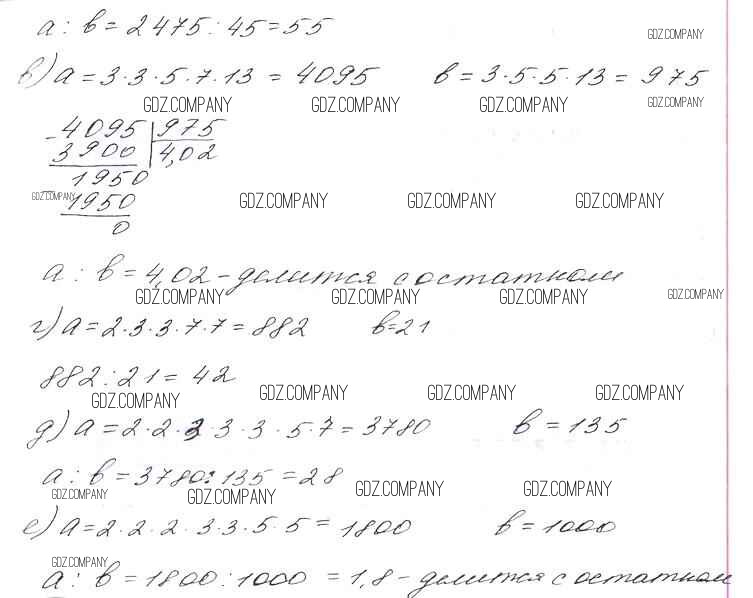 a : b = 2475 : 45 = 55
GDZ.COMPANY
в) a = 3·3·5·7·13 = 4095 b = 3·5·5·13 = 975
GDZ.COMPANY GDZ.COMPANY GDZ.COMPANY GDZ.COMPANY
- 4095 | 975
3900 | 4,02
1950
GDZ.COMPANY 1950 GDZ.COMPANY GDZ.COMPANY GDZ.COMPANY
0
a : b = 4,02 - делится с остатком
GDZ.COMPANY GDZ.COMPANY GDZ.COMPANY GDZ.COMPANY
г) a = 2·3·3·7·7 = 882 b = 21
882 : 21 = 42
GDZ.COMPANY GDZ.COMPANY GDZ.COMPANY GDZ.COMPANY
д) a = 2·2·3·3·3·5·7 = 3780 b = 135
a : b = 3780 : 135 = 28
GDZ.COMPANY GDZ.COMPANY GDZ.COMPANY GDZ.COMPANY
е) a = 2·2·2·3·3·5·5 = 1800 b = 1000
GDZ.COMPANY
a : b = 1800 : 1000 = 1,8 - делится с остатком